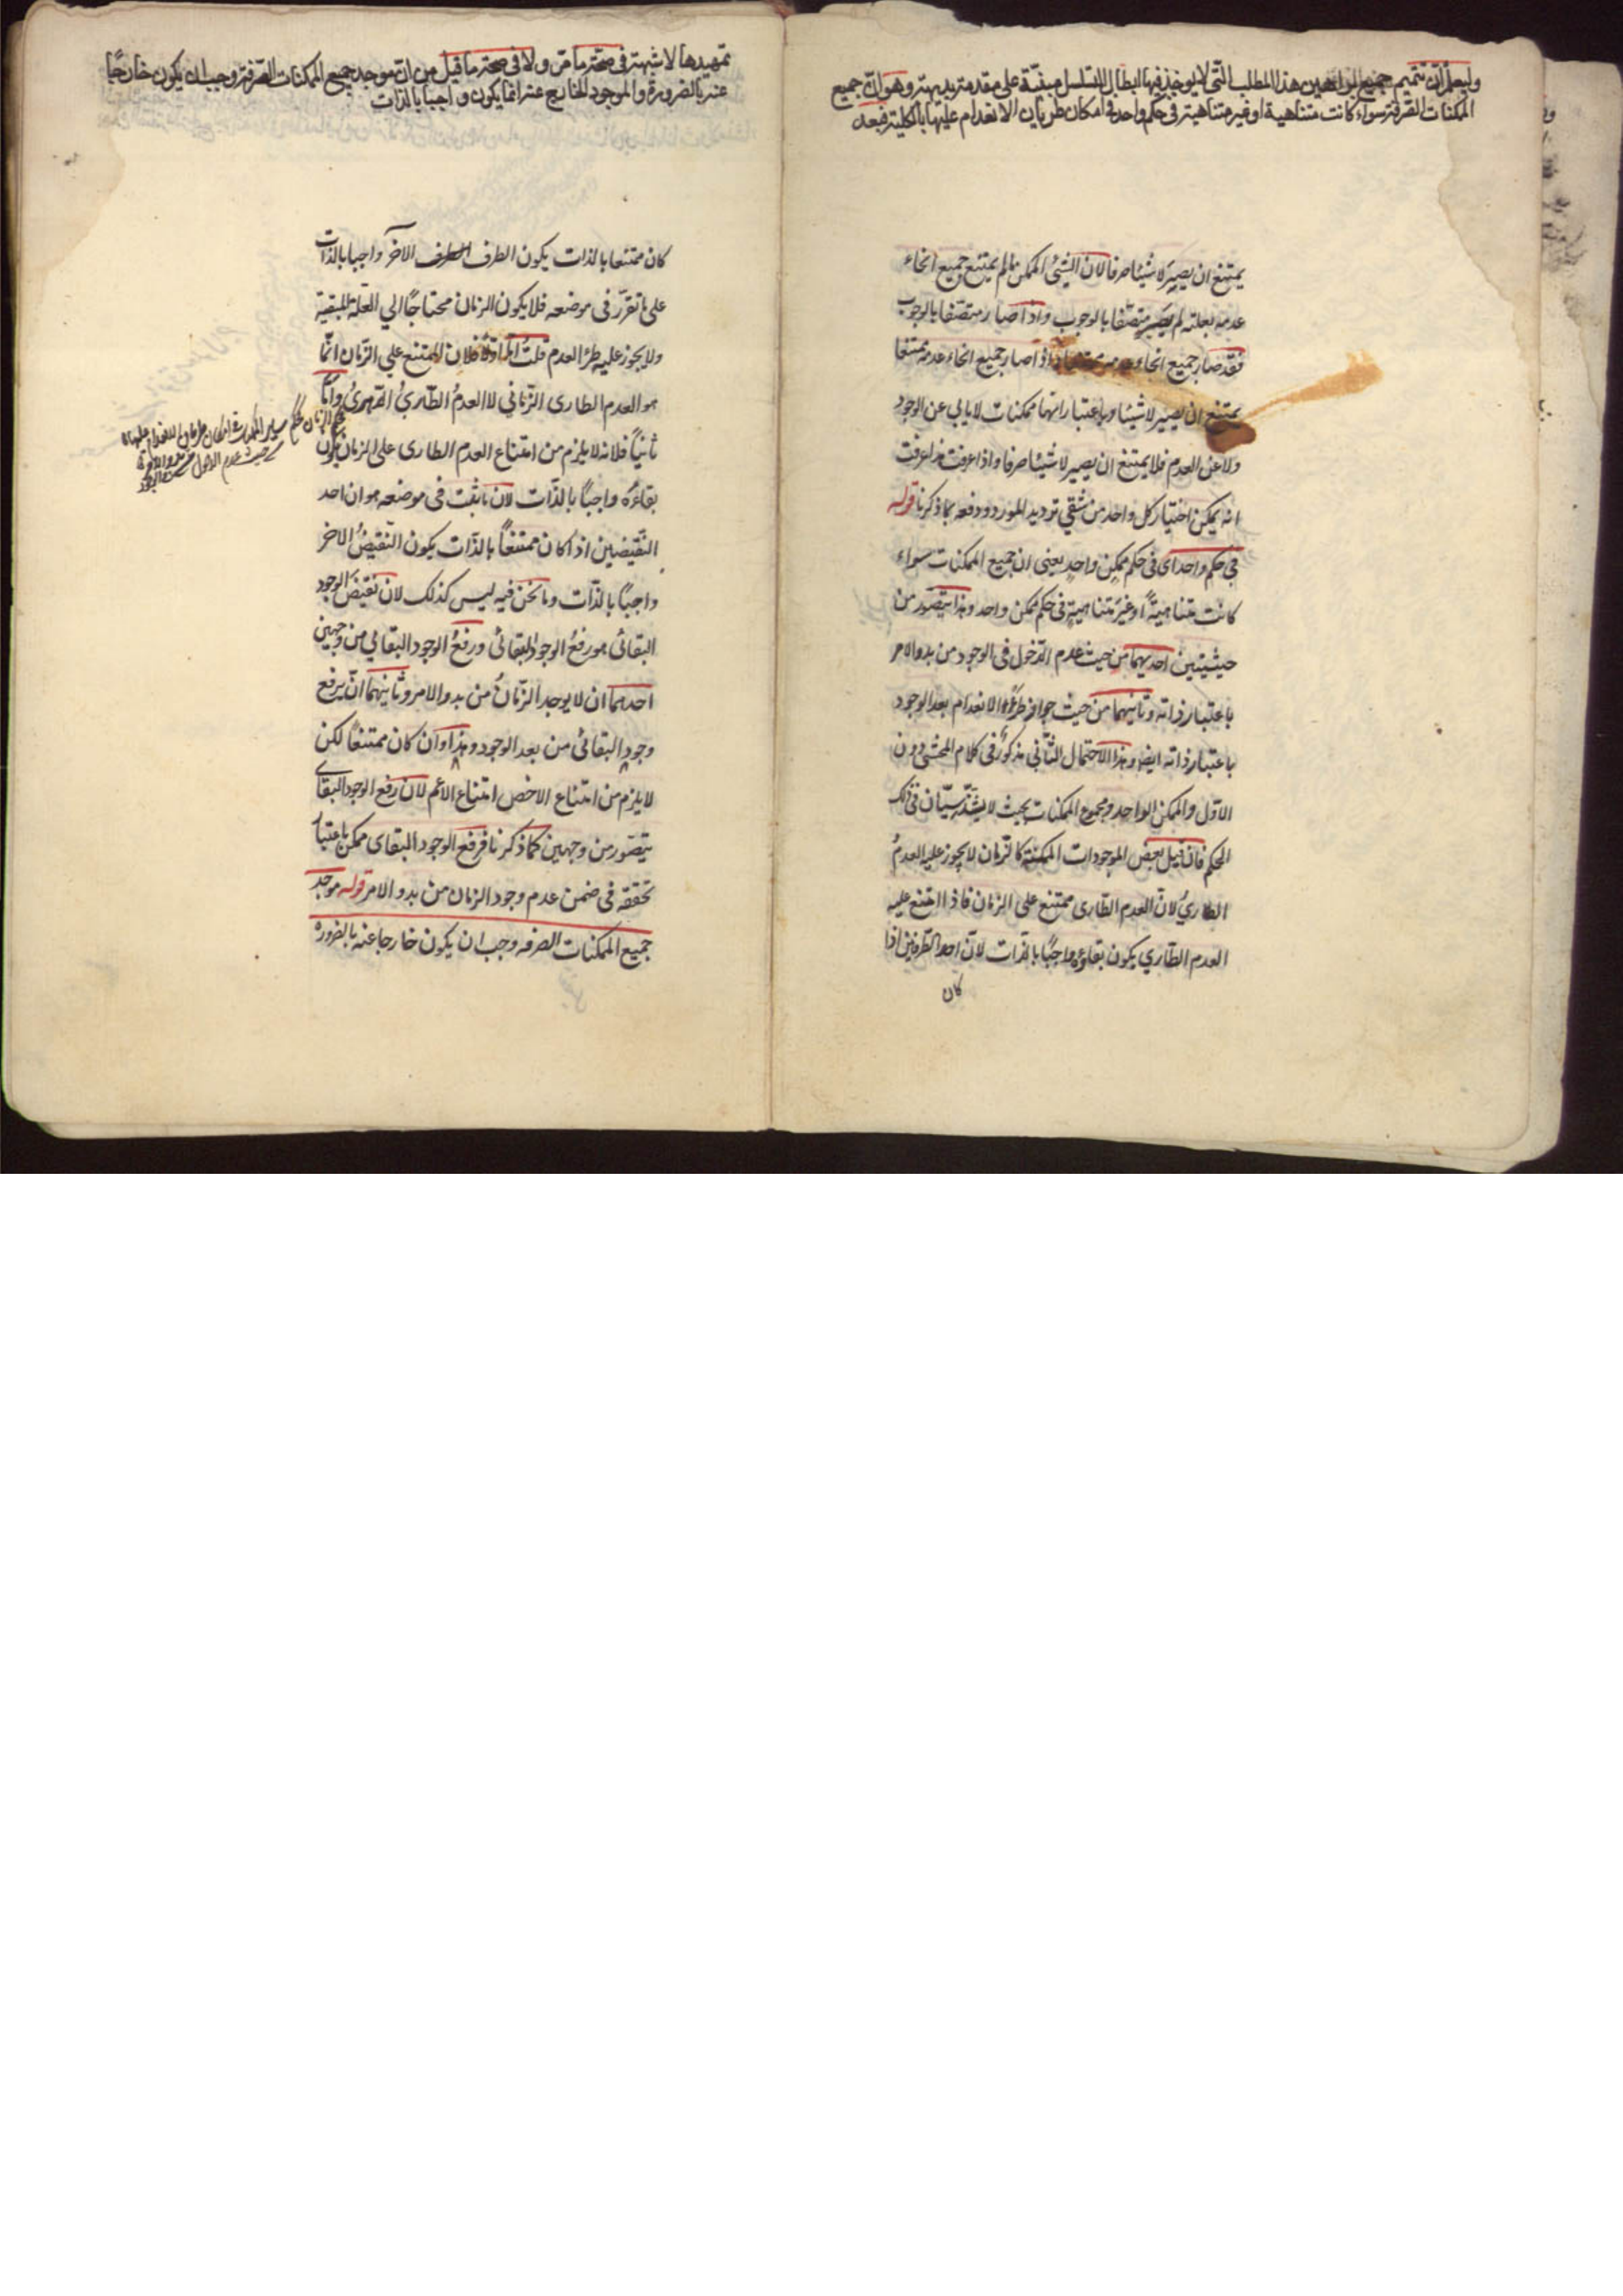 وليعلم ان تتميم جميع البراهين هذا المطلب التي لا يوخذ فيها ابطال التسلسل مبنية على مقدمة بديهية وهو ان جميع
الممكنات الصرفة سواء كانت متناهية او غير متناهية في حكم واحد في امكان طريان الانعدام عليها بالكلية فبعد
يمتنع ان يصير لا شيئا صرفا لان الشئ الممكن ما لم يمتنع جميع انحاء
عدمه بعلته لم يصير متصفا بالوجوب واذا صار متصفا بالوجوب
فقد صار جميع انحاء عدمه ممتنعا واذا صار جميع انحاء عدمه ممتنعا
يمتنع ان يصير لا شيئا وباعتبار انها ممكنات لا يابى عن الوجود
ولا عن العدم فلا يمتنع ان يصير لا شيئا صرفا واذا عرفت هذا عرفت
انه يمكن اختيار كل واحد من شقي ترديد المورد ودفعه بما ذكرنا قوله
في حكم واحد اى في حكم ممكن واحد يعنى ان جميع الممكنات سواء
كانت متناهية او غير متناهية في حكم ممكن واحد وهذا يتصور من
حيثيتين احديهما من حيث عدم الدخول في الوجود من بدو الامر
باعتبار ذاته وثانيهما من حيث جواز طرؤ الانعدام بعد الوجود
باعتبار ذاته ايضا وهذا الاحتمال الثاني مذكور في كلام المحشى دون
الاول والممكن الواحد ومجموع الممكنات بحيث لا يشذ سيان في ذلك
الحكم فان قيل بعض الموجودات الممكنة كالزمان لا يجوز عليه العدم
الطارىُ لان العدم الطارى ممتنع على الزمان فاذا امتنع عليه
العدم الطاري يكون بقاؤه واجبًا بالذات لان احد الطرفين اذا
كان
تمهيدها لا شبهة في صحة ما مرّ ولا في صحة ما قيل من ان موجد جميع الممكنات الصرفة وجب ان يكون خارجًا
عنه بالضرورة والموجود الخارج عنه انما يكون واجبا بالذات
كان ممتنعا بالذات يكون الطرف الطرف الآخر واجبا بالذات
على ما تقرّر في موضعه فلا يكون الزمان محتاجًا الي العلة المبقية
ولا يجوز عليه طرؤ العدم قلتُ اما اولاً فلان الممتنع علي الزّمان انّما
هو العدم الطارى الزمانى لا العدمُ الطّارىُ الدهرىُ واما
ثانياً فلانه لا يلزم من امتناع العدم الطارى على الزمان كون
بقاءه واجبًا بالذّات لان ما ثبت في موضعه هو ان احد
النقيضين اذا كان ممتنعًا بالذات يكون النقيضُ الاخر
واجبًا بالذات وما نحن فيه ليس كذلك لان نقيضَ الوجود
البقائى هو رفعُ الوجود البقائى ورفعُ الوجود البقائي من وجهين
احدهما ان لا يوجد الزمانُ من بدو الامر وثانيهما ان يرفع
وجود البقائى من بعد الوجود وهذا وان كان ممتنعًا لكن
لا يلزم من امتناع الاخص امتناع الاعم لان رفع الوجود البقاى
يتصور من وجهين كما ذكرنا فرفع الوجود البقاى ممكن باعتبار
تحققه في ضمن عدم وجود الزمان من بدو الامر قوله موجد
جميع الممكنات الصرفه وجب ان يكون خارجا عنه بالضروره